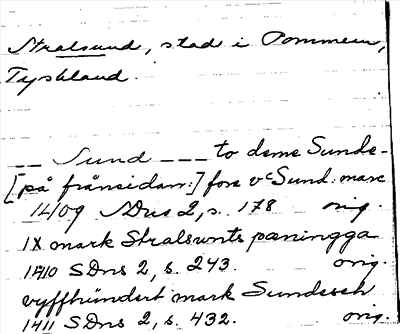 Stralsund, stad i Pommern,
Tyskland.
__ Sund ___ to deme Sunde-
[på frånsidan:] fore vc Sund. marc
1409 SDns 2, s. 178 orig.
IX mark Stralsunts pæningga
1410 SDns 2, s. 243. orig.
vyffhundert mark Sundesch
1411 SDns 2, s. 432. orig.